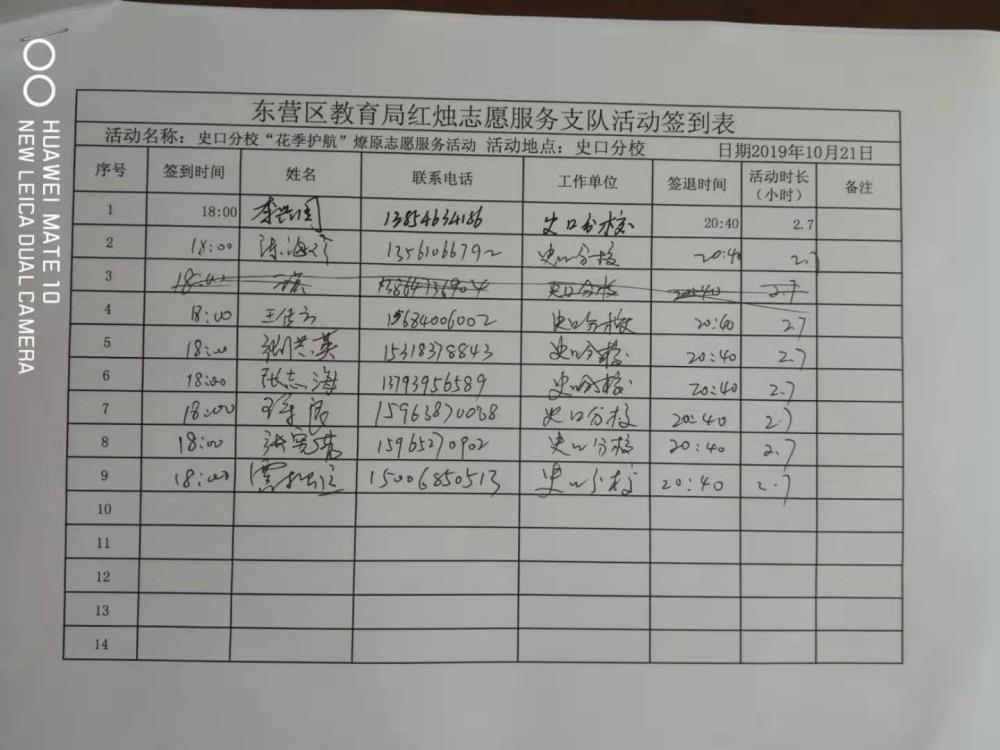 HUAWEI MATE 10
NEW LEICA DUAL CAMERA
东营区教育局红烛志愿服务支队活动签到表
活动名称：史口分校“花季护航”燎原志愿服务活动 活动地点：史口分校 日期2019年10月21日
序号 签到时间 姓名 联系电话 工作单位 签退时间 活动时长（小时） 备注
1 18:00 13854634186 史口分校 20:40 2.7
2 18:00 13561066792 史口分校 20:40 2.7
3 史口分校 20:40 2.7
4 18:00 15684006002 史口分校 20:40 2.7
5 18:00 张洪英 15318378843 史口分校 20:40 2.7
6 18:00 张志海 13793956589 史口分校 20:40 2.7
7 18:00 15963870068 史口分校 20:40 2.7
8 18:00 15965270902 史口分校 20:40 2.7
9 18:00 15006850513 史口分校 20:40 2.7
10
11
12
13
14